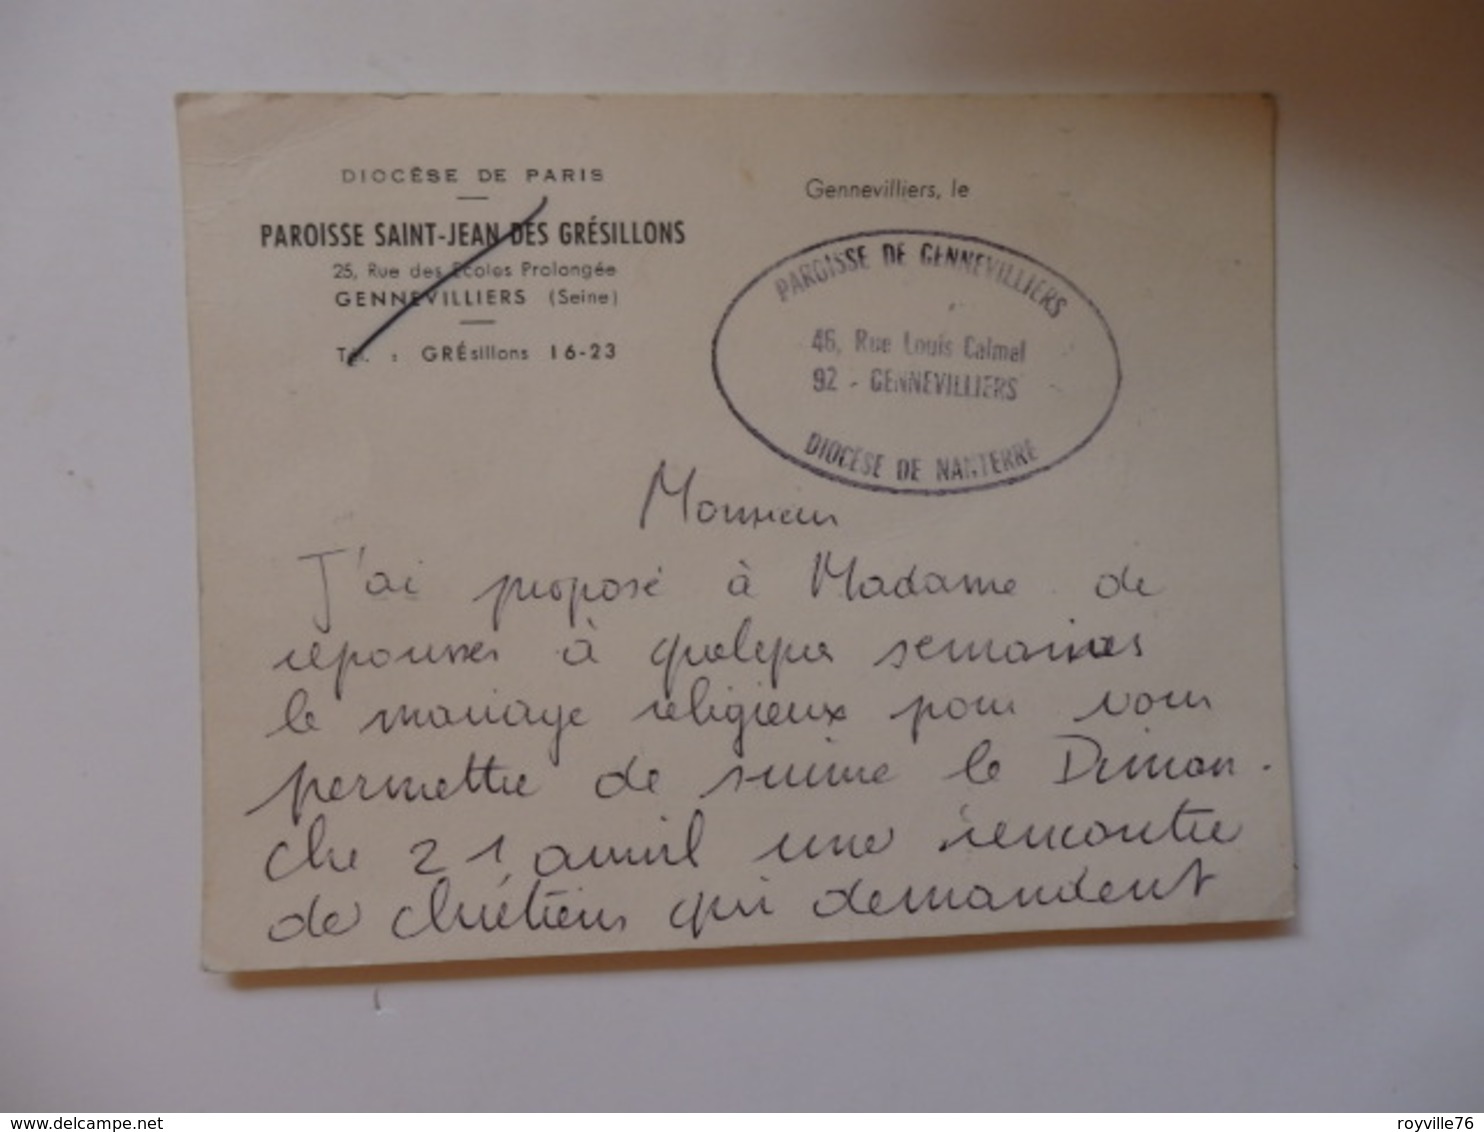 DIOCÈSE DE PARIS
PAROISSE SAINT-JEAN DES GRÉSILLONS
25, Rue des Écoles Prolongée
GENNEVILLIERS (Seine)
Tél. : GRÉsillons 16-23
Gennevilliers, le
PAROISSE DE GENNEVILLIERS
46, Rue Louis Calmel
92 - GENNEVILLIERS
DIOCÈSE DE NANTERRE
Monsieur
J'ai proposé à Madame de
repousser à quelques semaines
le mariage religieux pour vous
permettre de suivre le Diman-
che 21 avril une rencontre
de chrétiens qui demandent
delcampe.net
royville76